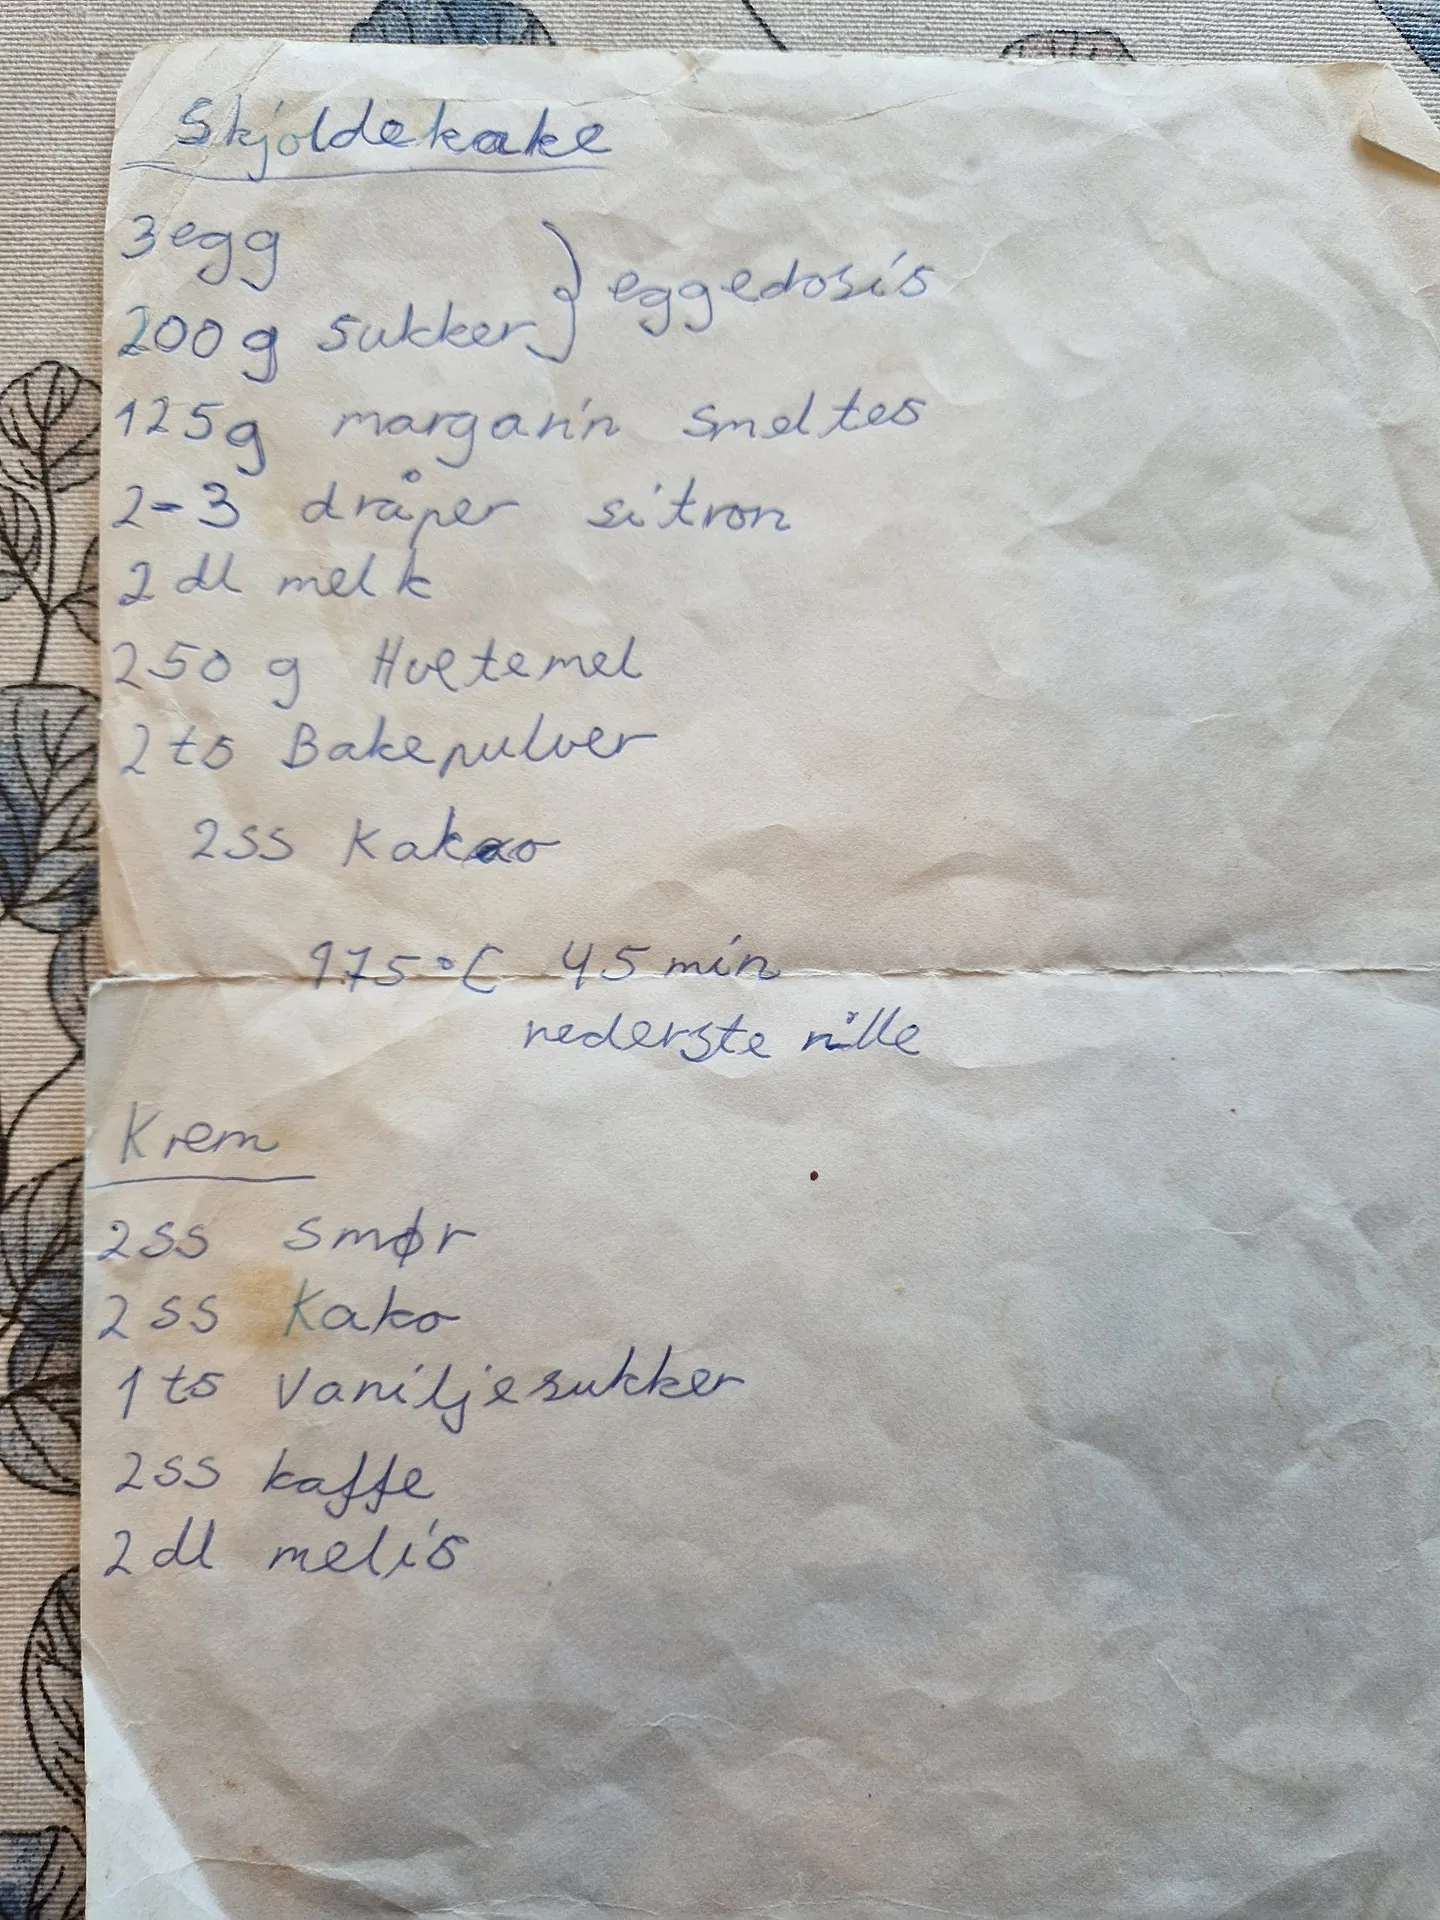 Skjoldekake
3 egg
200 g sukker } eggedosis
125g margarin smeltes
2-3 dråper sitron
2 dl melk
250 g Hvetemel
2 ts Bakepulver
2ss Kakao
175°C 45 min
nederste rille
Krem
2ss smør
2ss Kako
1 ts Vaniljesukker
2ss kaffe
2 dl melis